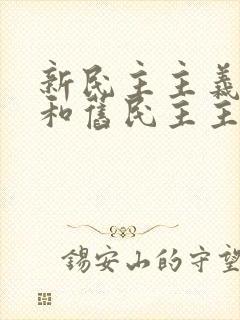 新民主主義
和舊民主主
錫安山的守望